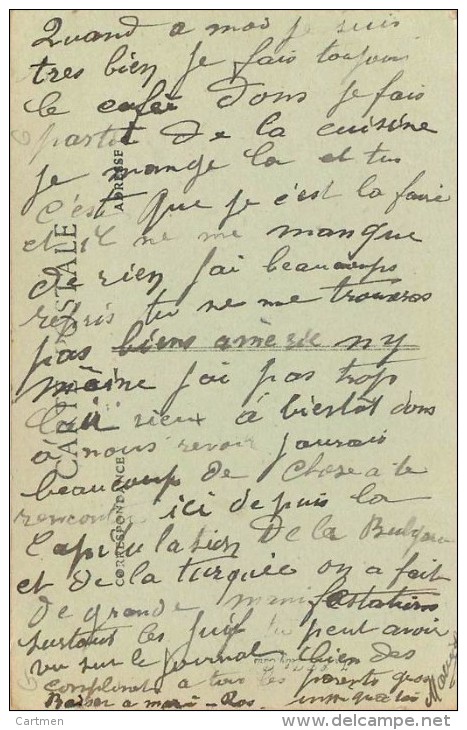 Quand a moi je suis
tres bien je fais toujours
le café dons je fais
partit de la cuisine
je mange la et tu
c'est que je c'est la faire
et il ne me manque
de rien j'ai beaucoups
repris tu ne me trouveras
pas biens ny
maine j'ai pas trop
l'air rieux à bientôt dons
à nous revoir jaurais
beaucoup de chose a te
rencontre ici depuis la
Capitulation de la Bulgarie
et de la turquie on a fait
de grande manifestations
surtout les juif tu peut avoir
vu sur le journal bien des
compliments a tous les parents
Baiser a
CARTE POSTALE
CORRESPONDANCE
ADRESSE
Cartmen
www.delcampe.net